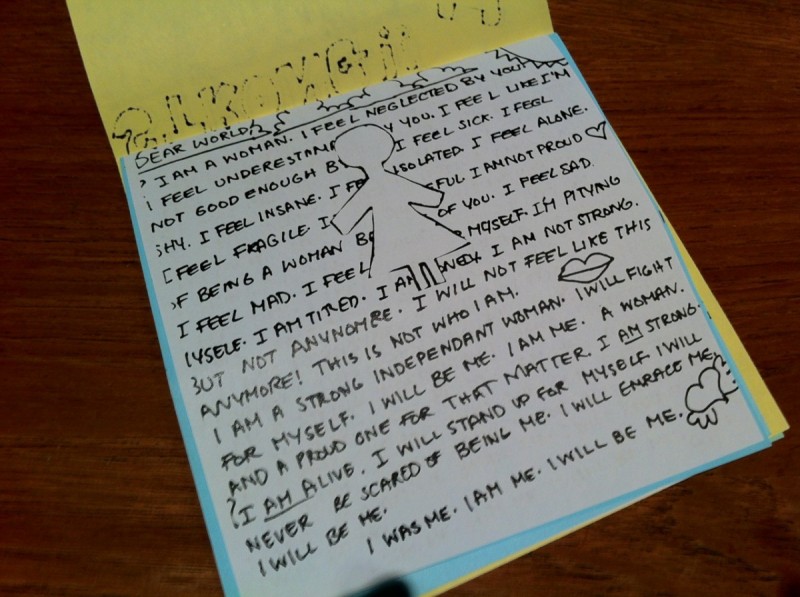 DEAR WORLD,
I AM A WOMAN. I FEEL NEGLECTED BY YOU.
I FEEL UNDERESTIMA Y YOU. I FEEL LIKE I'M
NOT GOOD ENOUGH B I FEEL SICK. I FEEL
SHY. I FEEL INSANE. I FE ISOLATED. I FEEL ALONE.
I FEEL FRAGILE. I EFUL I AM NOT PROUD
OF BEING A WOMAN BE OF YOU. I FEEL SAD.
I FEEL MAD. I FEEL R MYSELF. I'M PITYING
MYSELF. I AM TIRED. I AM I AM NOT STRONG.
BUT NOT ANYNOMRE. I WILL NOT FEEL LIKE THIS
ANYMORE! THIS IS NOT WHO I AM.
I AM A STRONG INDEPENDANT WOMAN. I WILL FIGHT
FOR MYSELF. I WILL BE ME. I AM ME. A WOMAN.
AND A PROUD ONE FOR THAT MATTER. I AM STRONG.
I AM ALIVE. I WILL STAND UP FOR MYSELF I WILL
NEVER BE SCARED OF BEING ME. I WILL EMBRACE ME.
I WILL BE ME.
I WAS ME. I AM ME. I WILL BE ME.